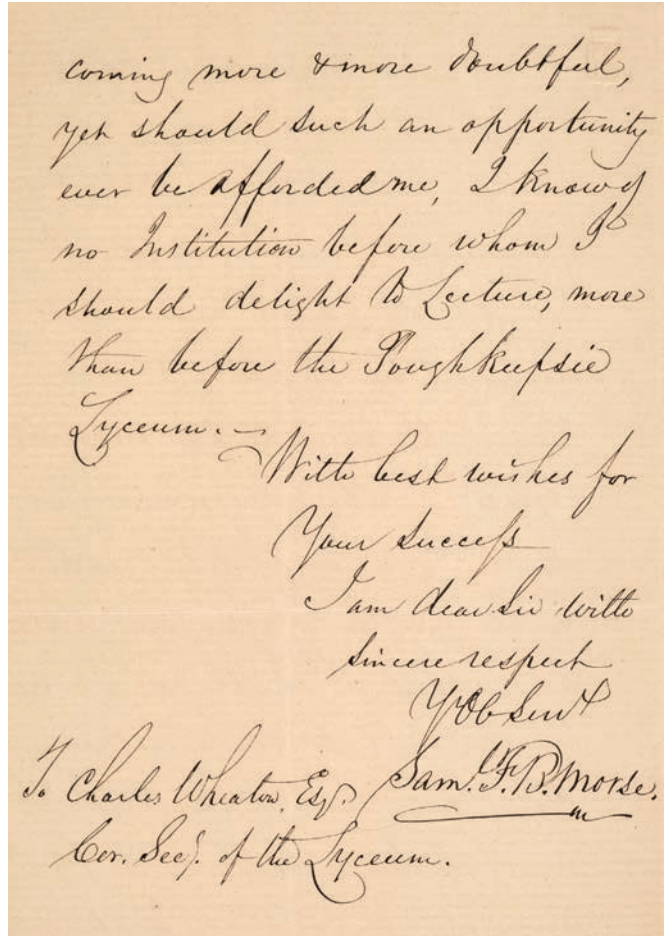 coming more & more doubtful,
yet should such an opportunity
ever be afforded me, I know of
no Institution before whom I
should delight to Lecture, more
than before the Poughkeepsie
Lyceum. —
With best wishes for
Your success
I am dear Sir with
sincere respect
Y Ob Servt
Sam. F. B. Morse.
To Charles Wheaton, Esq.
Cor. Secy. of the Lyceum.